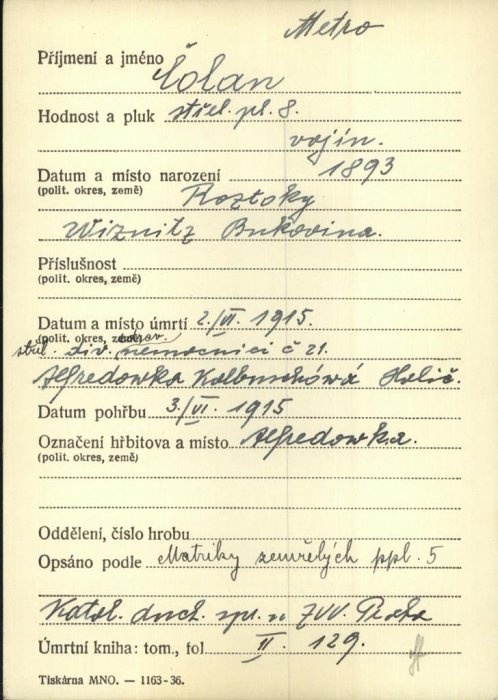 Metro
Příjmení a jméno Čolan
Hodnost a pluk střel. pl. 8.
vojín.
Datum a místo narození 1893
(polit. okres, země) Roztoky
Wiznitz Bukovina.
Příslušnost
(polit. okres, země)
Datum a místo úmrtí 2./VI. 1915.
(polit. okres, země)
střel. div. nemocnici č 21.
Alfredowka Kolbuschówá Halič.
Datum pohřbu 3./VI. 1915
Označení hřbitova a místo Alfredowka.
(polit. okres, země)
Oddělení, číslo hrobu
Opsáno podle Matriky zemřelých ppl. 5
Katol. duch. spr. u ZVV. Praha
Úmrtní kniha: tom., fol II. 129.
Tiskárna MNO. — 1163-36.